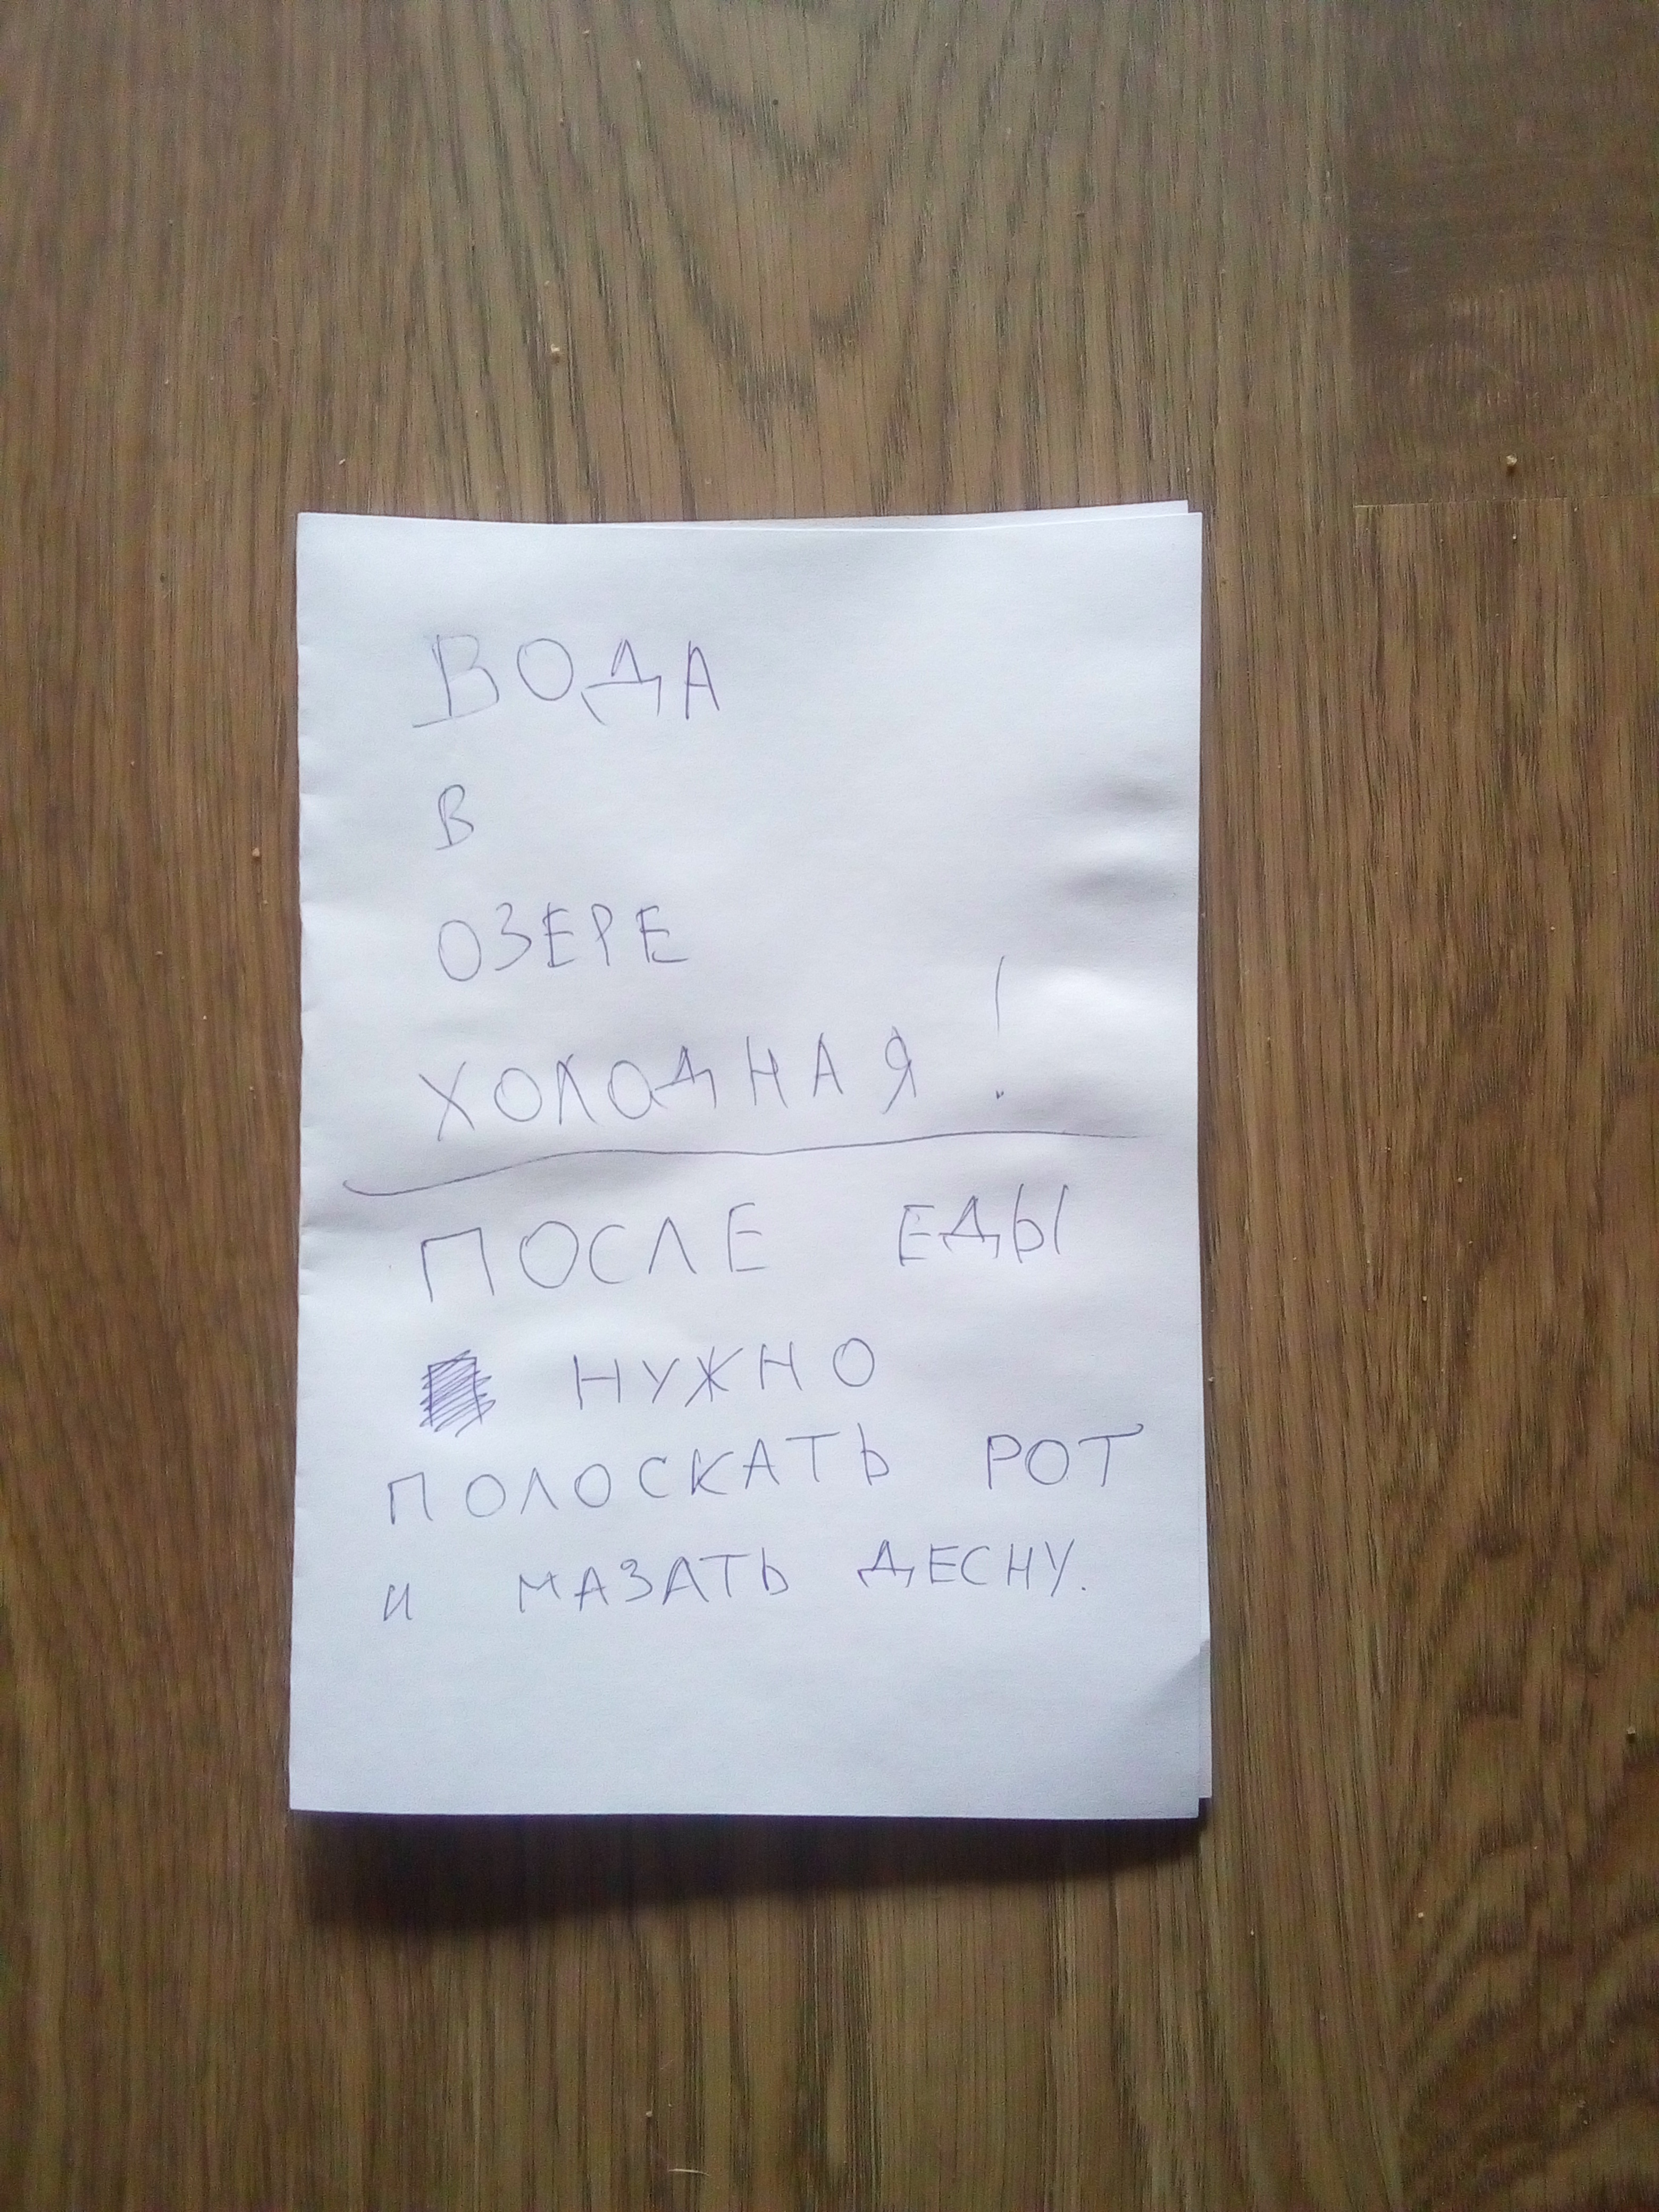 ВОДА
В
ОЗЕРЕ
ХОЛОДНАЯ!
ПОСЛЕ ЕДЫ
НУЖНО
ПОЛОСКАТЬ РОТ
И МАЗАТЬ ДЕСНУ.